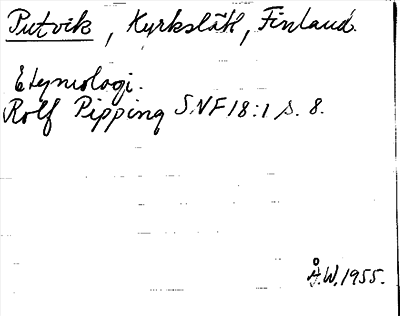 Putvik, Kyrkslätt, Finland.
Etymologi.
Rolf Pipping SNF 18:1 s. 8.
Å.W. 1955.